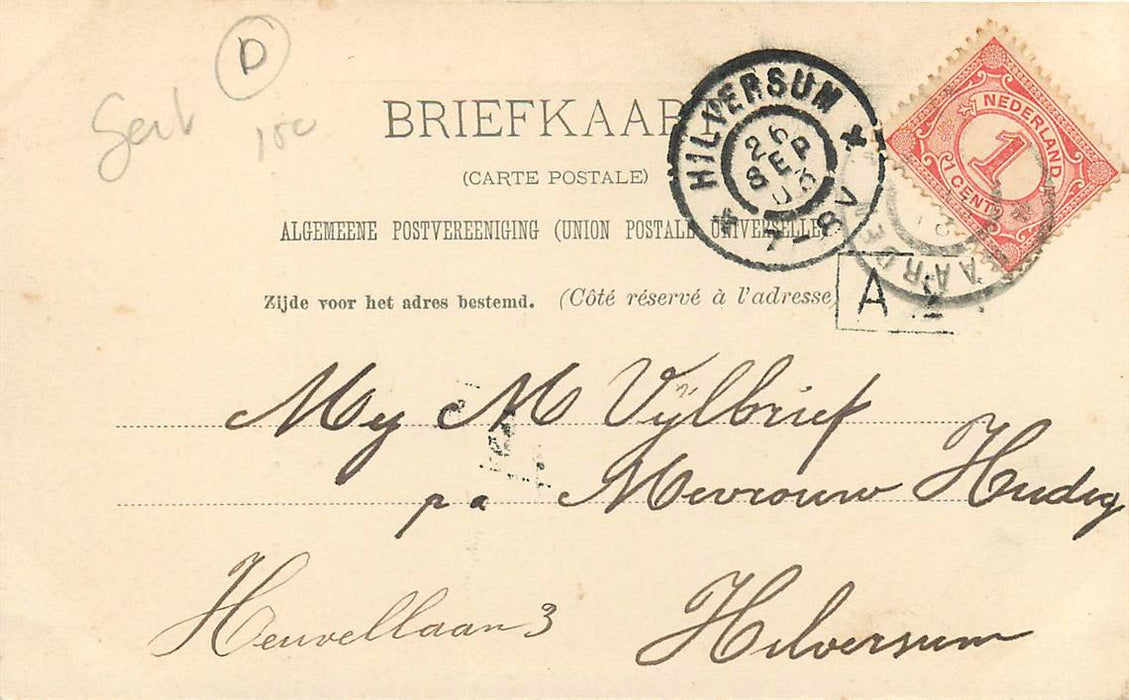 D
150
BRIEFKAAR
(CARTE POSTALE)
ALGEMEENE POSTVEREENIGING (UNION POSTALE UNIVERSELLE)
Zijde voor het adres bestemd. (Côté réservé à l'adresse
HILVERSUM
26
SEP
03
7-8V
NEDERLAND
1
1 CENT
A
Mej M Vijlbrief
pa Mevrouw Hudig
Heuvellaan 3 Hilversum